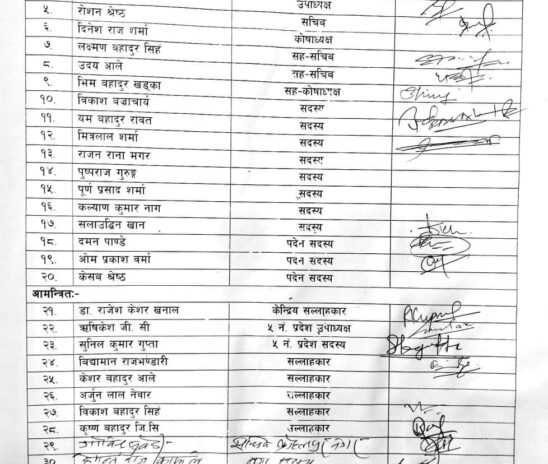 ५. रोशन श्रेष्ठ उपाध्यक्ष
६. दिनेश राज शर्मा सचिव
७. लक्ष्मण बहादुर सिहं कोषाध्यक्ष
८. उदय आले सह-सचिव
९. भिम बहादुर खड्का सह-सचिव
१०. विकाश बज्राचार्य सह-कोषाध्यक्ष
११. यम बहादुर रावत सदस्य
१२. मित्रलाल शर्मा सदस्य
१३. राजन राना मगर सदस्य
१४. पुष्पराज गुरुङ्ग सदस्य
१५. पूर्ण प्रसाद शर्मा सदस्य
१६. कल्याण कुमार नाग सदस्य
१७. सलाउद्धिन खान सदस्य
१८. दमन पाण्डे पदेन सदस्य
१९. ओम प्रकाश वर्मा पदेन सदस्य
२०. केसब श्रेष्ठ पदेन सदस्य
आमन्त्रितः-
२१. डा. राजेश केशर खनाल केन्द्रिय सल्लाहकार
२२. ऋषिकेश जी. सी ५ नं. प्रदेश उपाध्यक्ष
२३. सुनिल कुमार गुप्ता ५ नं. प्रदेश सदस्य
२४. विद्यामान राजभण्डारी सल्लाहकार
२५. केशर बहादुर आले सल्लाहकार
२६. अर्जुन लाल नेवार सल्लाहकार
२७. विकाश बहादुर सिहं सल्लाहकार
२८. कृष्ण बहादुर जि.सि सल्लाहकार
२९.
३०.